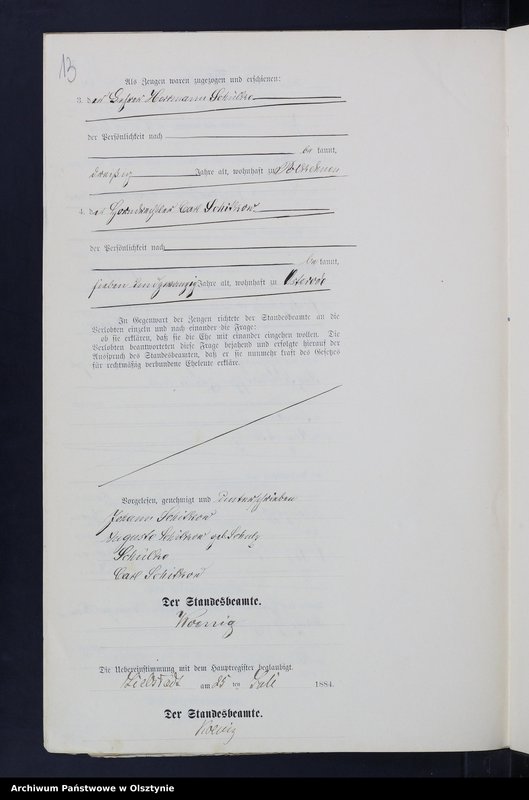 13
Als Zeugen waren zugezogen und erschienen:
3. der Hermann Schulze
der Persönlichkeit nach
be kannt,
dreißig Jahre alt, wohnhaft zu
4. der Carl Schitkow
der Persönlichkeit nach
be kannt,
sieben und zwanzig Jahre alt, wohnhaft zu Osterode
In Gegenwart der Zeugen richtete der Standesbeamte an die
Verlobten einzeln und nach einander die Frage:
ob sie erklären, daß sie die Ehe mit einander eingehen wollen. Die
Verlobten beantworteten diese Frage bejahend und erfolgte hierauf der
Ausspruch des Standesbeamten, daß er sie nunmehr kraft des Gesetzes
für rechtmäßig verbundene Eheleute erkläre.
Vorgelesen, genehmigt und unterschrieben
Johann Schitkow
Auguste Schitkow geb. Schulz
Schulze
Carl Schitkow
Der Standesbeamte.
Koenig
Die Uebereinstimmung mit dem Hauptregister beglaubigt.
Liebstadt am 25 ten Juli 1884.
Der Standesbeamte.
Koenig
Archiwum Państwowe w Olsztynie